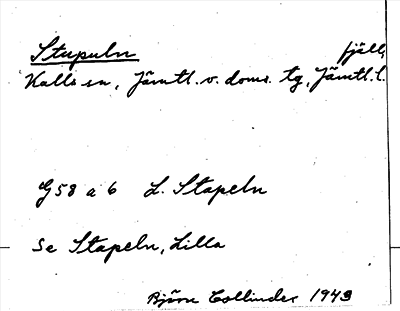 Stapeln fjäll,
Kalls sn, Jämtl. v. doms. tg, Jämtl. l.
G58 a 6 L. Stapeln
Se Stapeln, Lilla
Björn Collinder 1943